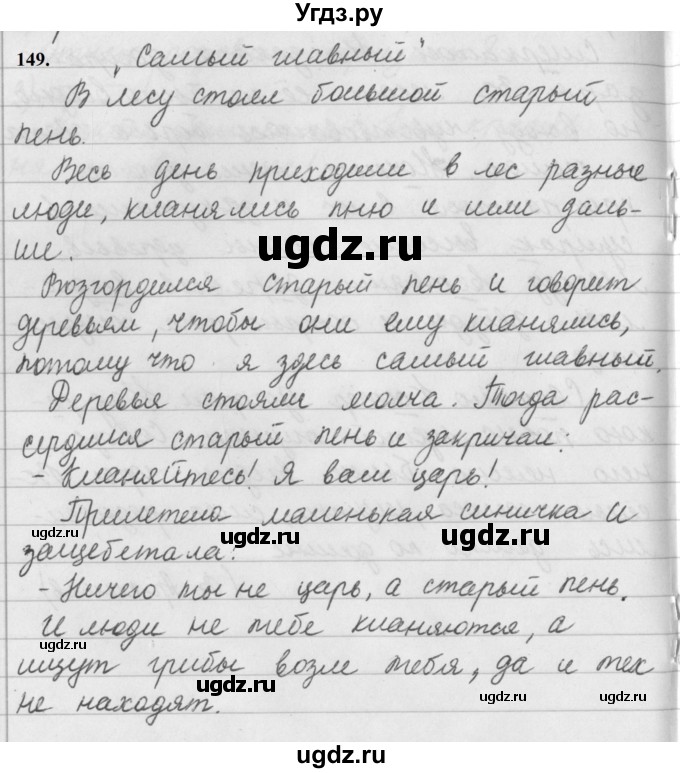 Угдз.ру
149. „Самый главный"
В лесу стоял большой старый
пень.
Весь день приходили в лес разные
люди, кланялись пню и шли даль-
ше.
ugdz.ru
Возгордился старый пень и говорит
деревьям, чтобы они ему кланялись,
потому что я здесь самый главный.
Деревья стояли молча. Тогда рас-
сердился старый пень и закричал:
- Кланяйтесь! Я ваш царь!
Прилетела маленькая синичка и
ugdz.ru ugdz.ru
защебетала:
- Ничего ты не царь, а старый пень.
И люди не тебе кланяются, а
ищут грибы возле тебя, да и тех
ugdz.ru
не находят.
ugdz.ru